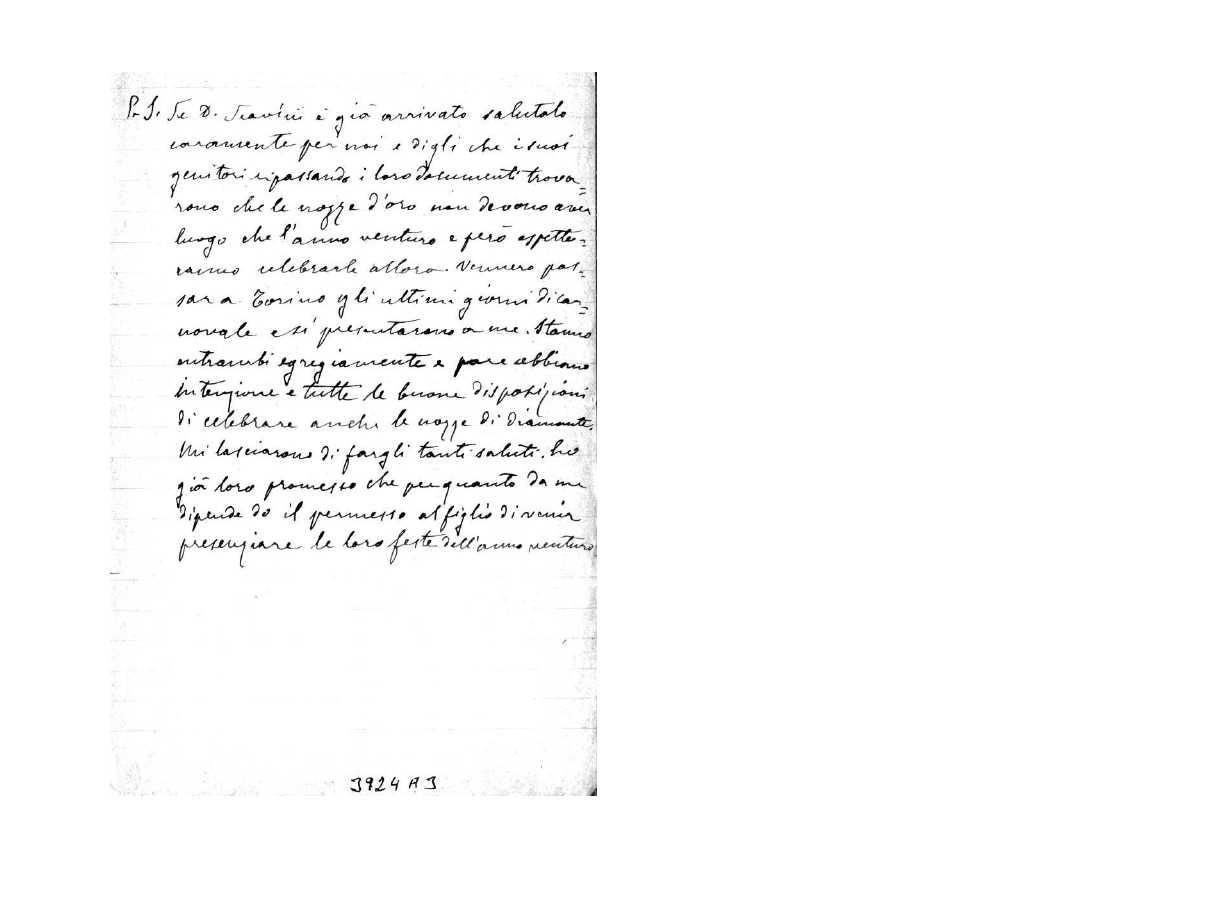 P. S. Se D. Scavini è già arrivato salutalo
caramente per noi e digli che i suoi
genitori ripassando i loro documenti trova=
rono che le nozze d'oro non devono aver
luogo che l'anno venturo e però aspette=
ranno celebrarle allora. Vennero pas=
sar a Torino gli ultimi giorni di car=
novale e si presentarono a me. Stanno
entrambi egregiamente e pare abbiano
intenzione e tutte le buone disposizioni
di celebrare anche le nozze di diamante.
Mi lasciarono di fargli tanti saluti. ho
già loro promesso che per quanto da me
dipende do il permesso al figlio di venir
presenziare le loro feste dell'anno venturo
3924 A 3